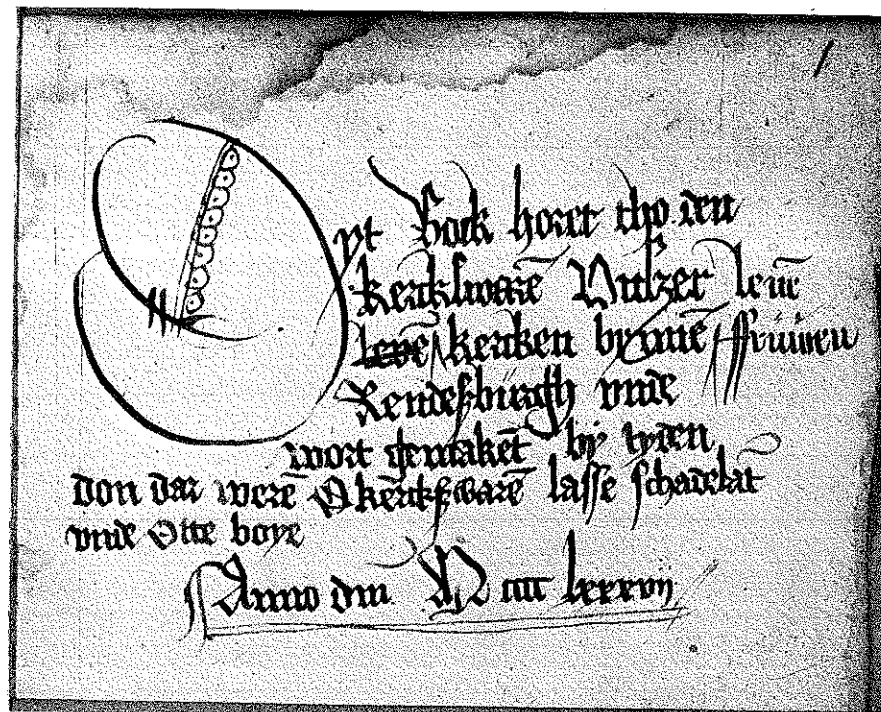 Dyt bock horet tho den
kerkswarē Unszer leuē
kerken bynnē
Rendeszburgh vnde
wort gemaket by tyden
don dar werē kerkswarē lasse schadelāt
vnde Otte boye
Anno dm̄ M cccc lxxxvij